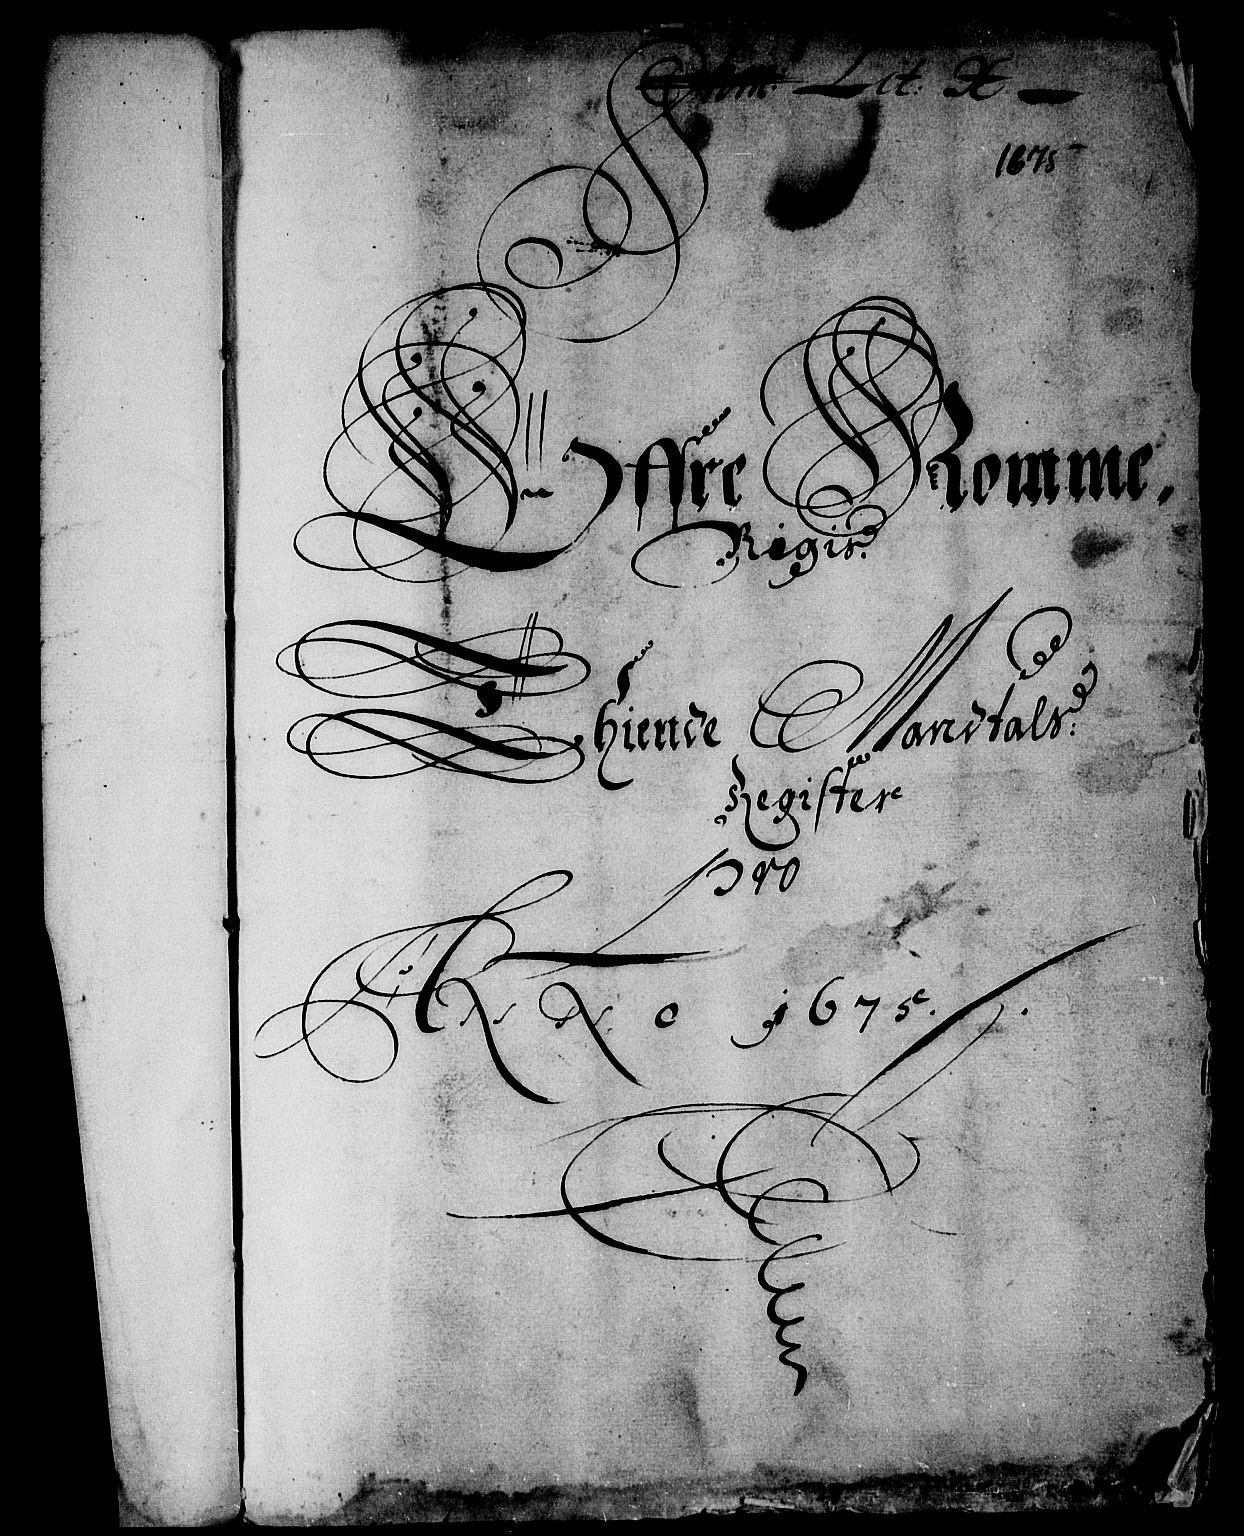 Lit: X
1675
Øffre Romme.
Regis:
Thiende Mandtals:
Register
pro
ANNO 1675.